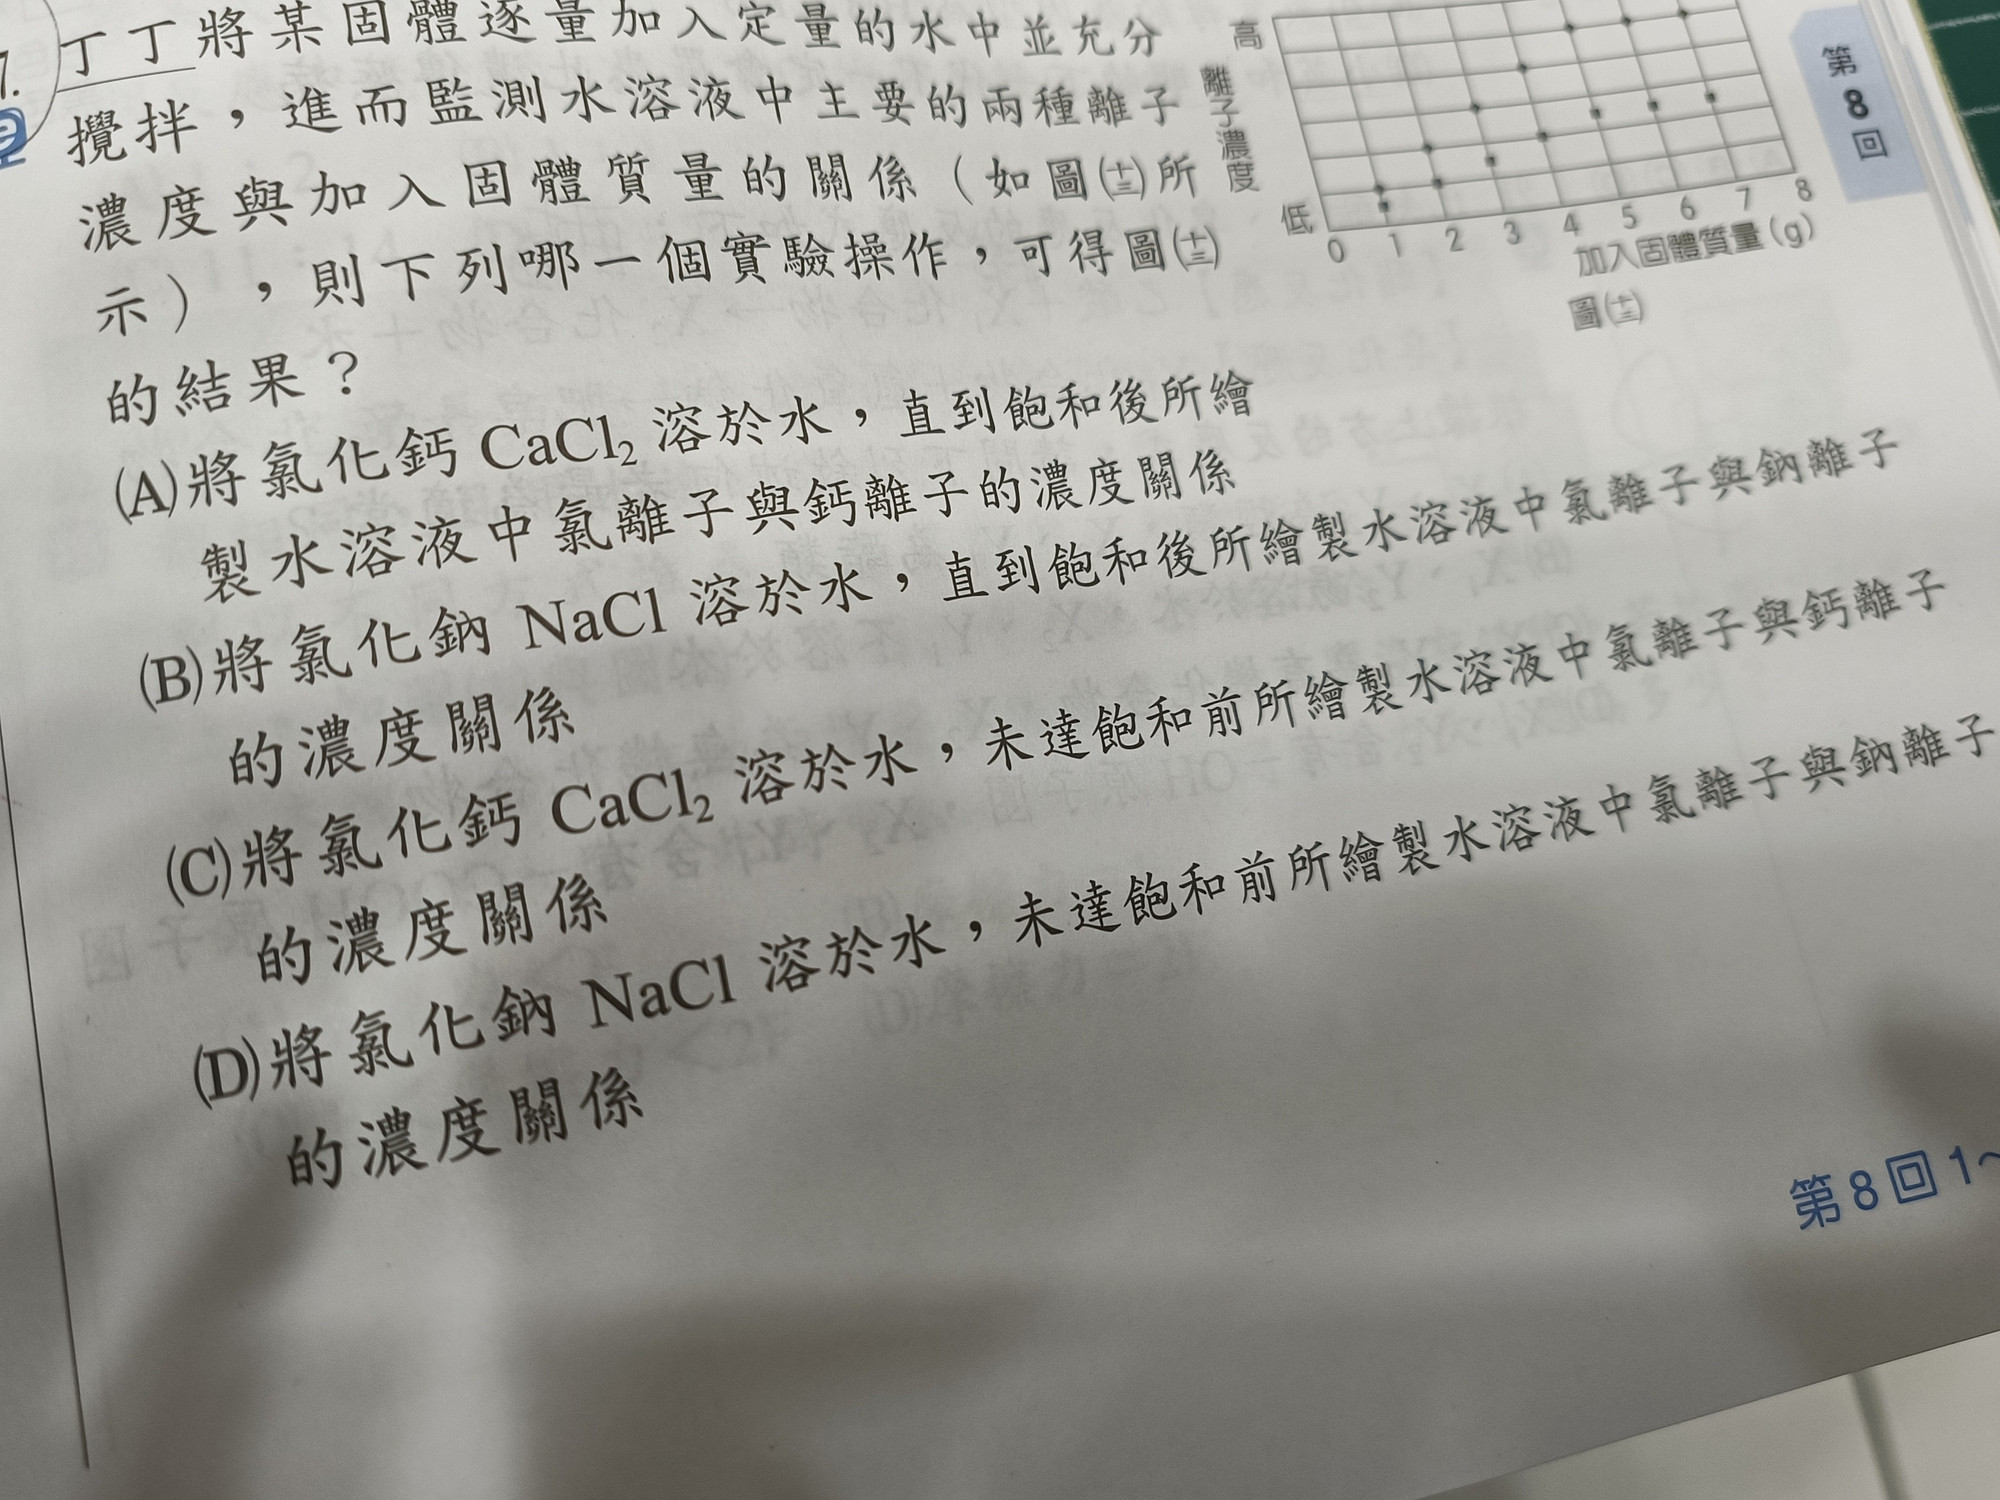 7.
丁丁將某固體逐量加入定量的水中並充分
攪拌，進而監測水溶液中主要的兩種離子
濃度與加入固體質量的關係（如圖㈩㈢所
示），則下列哪一個實驗操作，可得圖㈩㈢
的結果？
(A)將氯化鈣 CaCl₂ 溶於水，直到飽和後所繪
製水溶液中氯離子與鈣離子的濃度關係
(B)將氯化鈉 NaCl 溶於水，直到飽和後所繪製水溶液中氯離子與鈉離子
的濃度關係
(C)將氯化鈣 CaCl₂ 溶於水，未達飽和前所繪製水溶液中氯離子與鈣離子
的濃度關係
(D)將氯化鈉 NaCl 溶於水，未達飽和前所繪製水溶液中氯離子與鈉離子
的濃度關係
高
離子濃度
低
0 1 2 3 4 5 6 7 8
加入固體質量(g)
圖㈩㈢
第
8
回
第8回 1～